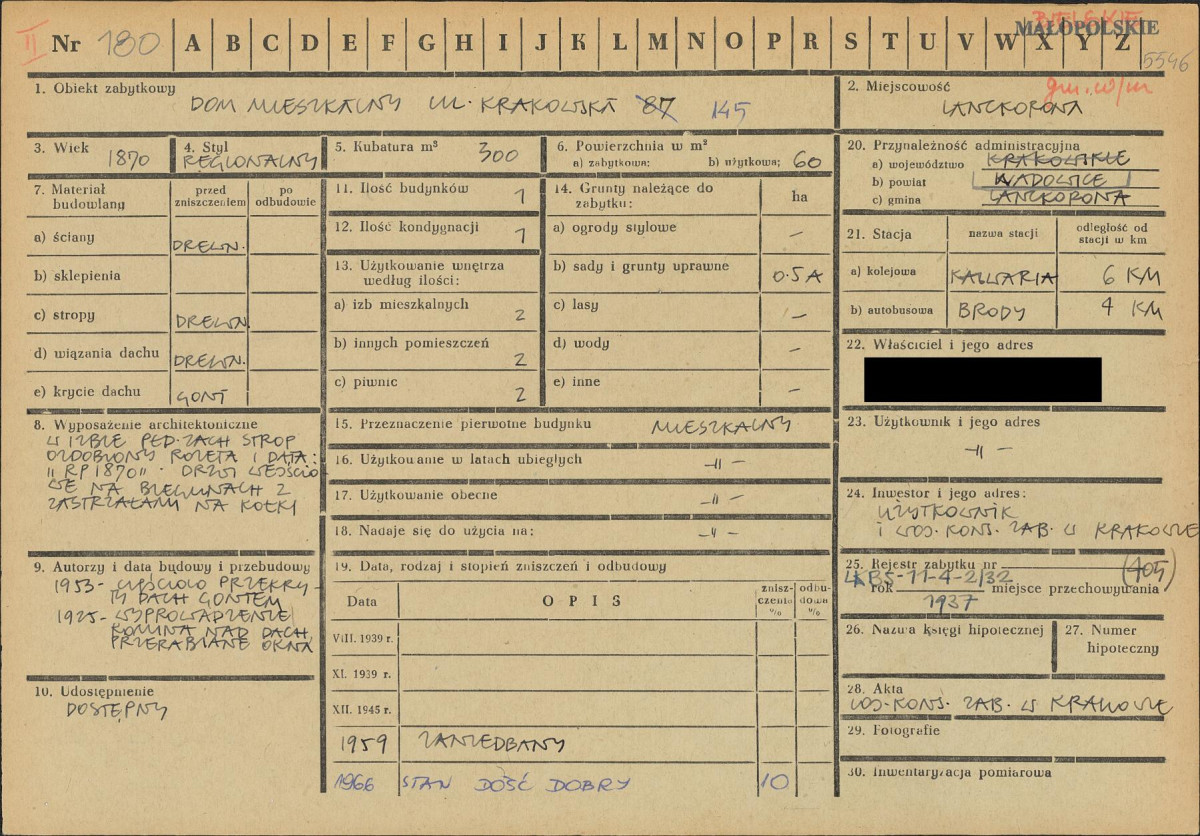 II Nr 180 A B C D E F G H I J K L M N O P R S T U V W X Y Z
BIELSKIE
MAŁOPOLSKIE
5546
1. Obiekt zabytkowy
DOM MIESZKALNY UL. KRAKOWSKA 87 145
2. Miejscowość gm. w/m
LANCKORONA
3. Wiek 1870
4. Styl REGIONALNY
5. Kubatura m³ 300
6. Powierzchnia w m²
a) zabytkowa: b) użytkowa: 60
7. Materiał budowlany
przed zniszczeniem
po odbudowie
a) ściany DREWN.
b) sklepienia
c) stropy DREWN
d) wiązania dachu DREWN.
e) krycie dachu GONT
8. Wyposażenie architektoniczne
W IZBIE PŁD-ZACH STROP
OZDOBIONY ROZETĄ I DATĄ:
"RP 1870". DRZWI WEJŚCIO-
WE NA BIEGUNACH Z
ZASTRZAŁAMI NA KOŁKI
9. Autorzy i data budowy i przebudowy
1953 - CZĘŚCIOWO PRZEKRY-
TY DACH GONTEM
1925 - WYPROWADZENIE
KOMINA NAD DACH,
PRZERABIANE OKNA
10. Udostępnienie
DOSTĘPNY
11. Ilość budynków 1
12. Ilość kondygnacji 1
13. Użytkowanie wnętrza
według ilości:
a) izb mieszkalnych 2
b) innych pomieszczeń 2
c) piwnic 2
14. Grunty należące do
zabytku: ha
a) ogrody stylowe –
b) sady i grunty uprawne 0.5A
c) lasy –
d) wody –
e) inne –
15. Przeznaczenie pierwotne budynku MIESZKALNY
16. Użytkowanie w latach ubiegłych –"–
17. Użytkowanie obecne –"–
18. Nadaje się do użycia na: –"–
19. Data, rodzaj i stopień zniszczeń i odbudowy
Data OPIS zniszczenia % odbudowa %
VIII. 1939 r.
XI. 1939 r.
XII. 1945 r.
1959 ZANIEDBANY
1966 STAN DOŚĆ DOBRY 10
20. Przynależność administracyjna
a) województwo KRAKOWSKIE
b) powiat WADOWICE
c) gmina LANCKORONA
21. Stacja
nazwa stacji
odległość od
stacji w km
a) kolejowa KALWARIA 6 KM
b) autobusowa BRODY 4 KM
22. Właściciel i jego adres
23. Użytkownik i jego adres
–"–
24. Inwestor i jego adres:
UŻYTKOWNIK
I WOJ. KONS. ZAB. W KRAKOWIE
25. Rejestr zabytku nr (405)
LKBS-11-4-2/32
rok 1937 miejsce przechowywania
26. Nazwa księgi hipotecznej
27. Numer
hipoteczny
28. Akta
WOJ. KONS. ZAB. W KRAKOWIE
29. Fotografie
30. Inwentaryzacja pomiarowa